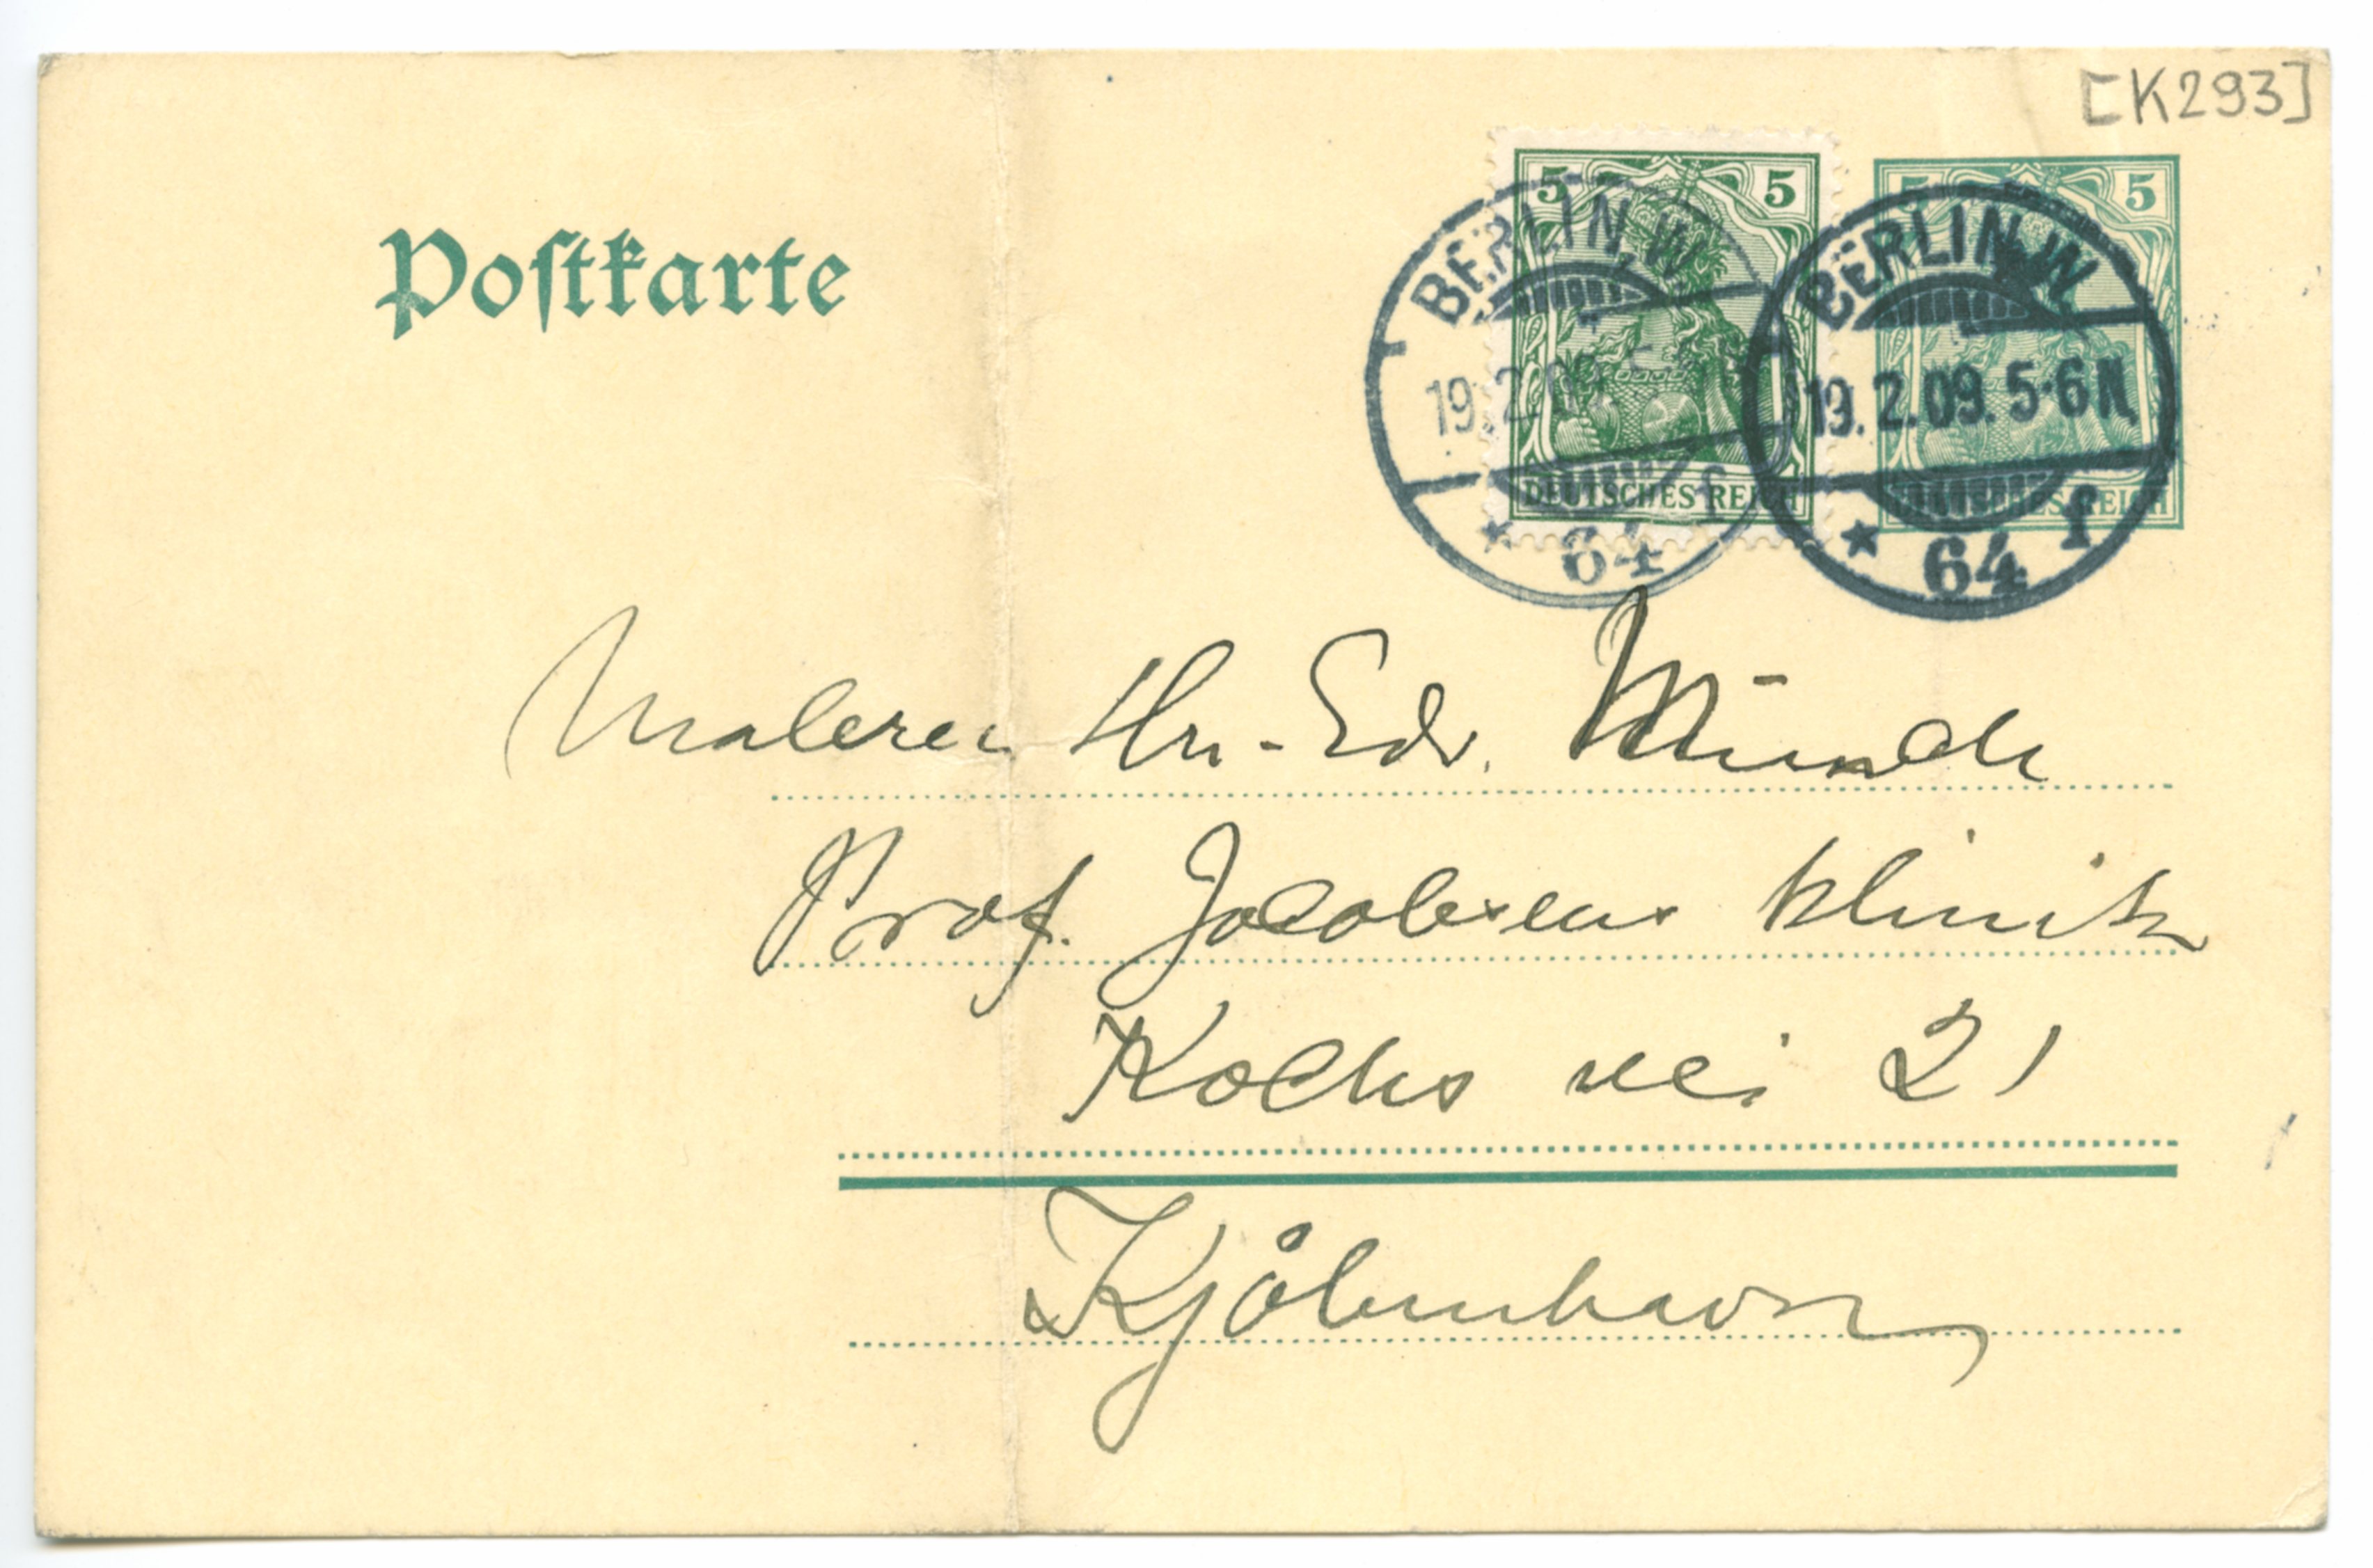 [K293]
Postkarte
5 5
DEUTSCHES REICH
5 5
DEUTSCHES REICH
BERLIN.W.
19.2.09. 5
* 64 f
BERLIN.W.
19.2.09. 5-6N
* 64 f
Maleren Hr. Edv. Munch
Prof. Jacobsens klinik
Kochs vei 21
Kjøbenhavn